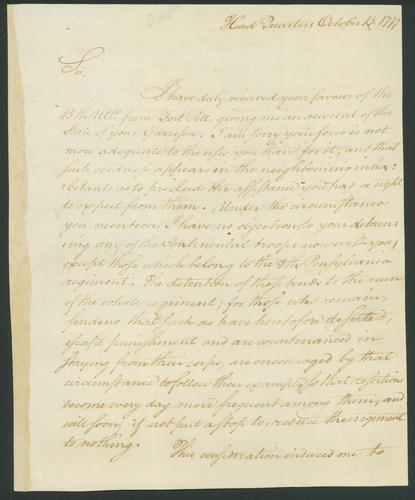 Head Quarters October 13. 1777
Sir.
I have duly received your favour of the
15th Ulto from Fort Pitt, giving me an account of the
State of your Garrison. I am sorry your force is not
more adequate to the uses you have for it, and that
such coldness appears in the neighbouring inha-
bitants as to preclude the assistance you had a right
to expect from them. Under the circumstances
you mention, I have no objection to your detain-
ing any of the Continental troops now with you,
except those which belong to the 8th Pensylvania
regiment. The detention of those tends to the ruin
of the whole regiment; for those who remain,
finding that such as have heretofore deserted,
escape punishment and are countenanced in
staying from their corps, are encouraged by that
circumstance to follow their example, so that desertions
become every day more frequent among them, and
will soon, if not put a stop to reduce the regiment
to nothing. This consideration induced me to